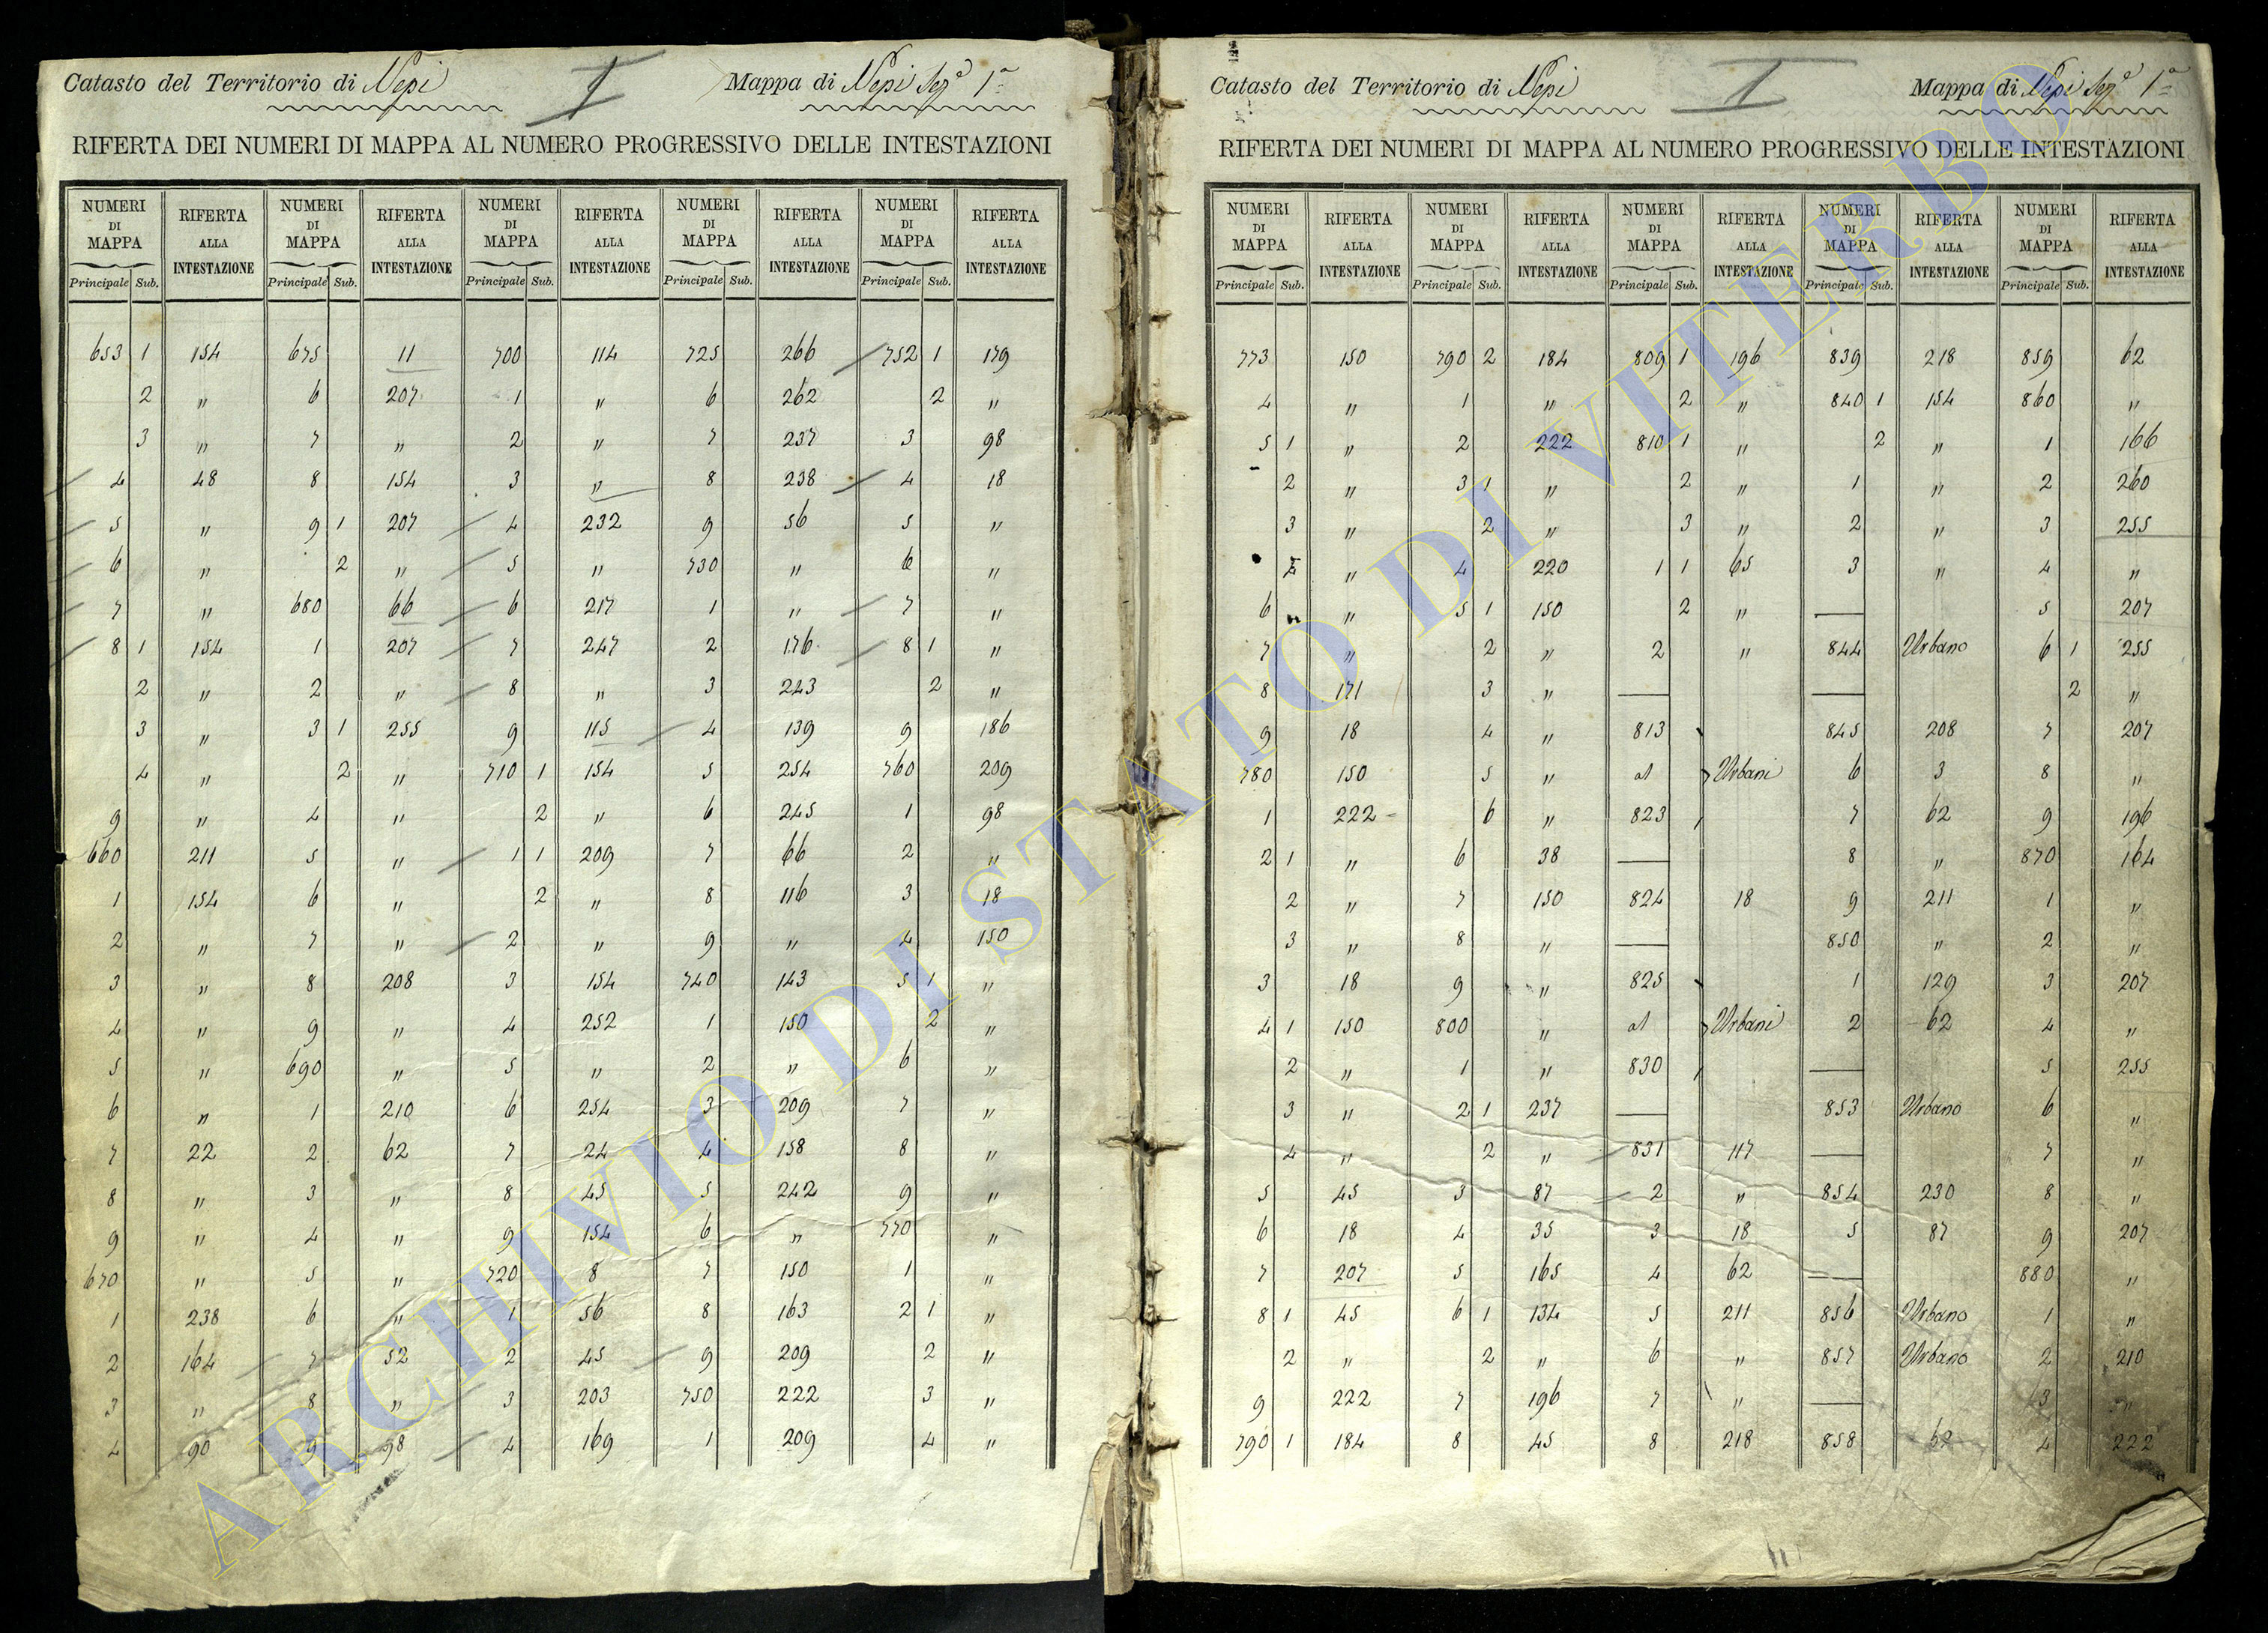 Catasto del Territorio di Nepi I Mappa di Nepi Sez.e 1a
RIFERTA DEI NUMERI DI MAPPA AL NUMERO PROGRESSIVO DELLE INTESTAZIONI
NUMERI DI MAPPA RIFERTA ALLA INTESTAZIONE NUMERI DI MAPPA RIFERTA ALLA INTESTAZIONE NUMERI DI MAPPA RIFERTA ALLA INTESTAZIONE NUMERI DI MAPPA RIFERTA ALLA INTESTAZIONE NUMERI DI MAPPA RIFERTA ALLA INTESTAZIONE
Principale Sub. Principale Sub. Principale Sub. Principale Sub. Principale Sub.
653 1 154 675 11 700 114 725 266 752 1 179
2 " 6 207 1 " 6 262 2 "
3 " 7 " 2 " 7 237 3 98
4 48 8 154 3 " 8 238 4 18
5 " 9 1 207 4 232 9 56 5 "
6 " 2 " 5 " 730 " 6 "
7 " 680 66 6 217 1 " 7 "
8 1 154 1 207 7 247 2 176 8 1 "
2 " 2 " 8 " 3 243 2 "
3 " 3 1 255 9 115 4 139 9 186
4 " 2 " 710 1 154 5 254 760 209
9 " 4 " 2 " 6 245 1 98
660 211 5 " 1 1 209 7 66 2 "
1 154 6 " 2 " 8 116 3 18
2 " 7 " 2 " 9 " 4 150
3 " 8 208 3 154 740 143 5 1 "
4 " 9 " 4 252 1 150 2 "
5 " 690 " 5 " 2 " 6 "
6 " 1 210 6 254 3 209 7 "
7 22 2 62 7 24 4 158 8 "
8 " 3 " 8 45 5 242 9 "
9 " 4 " 9 154 6 " 770 "
670 " 5 " 720 8 7 150 1 "
1 238 6 " 1 56 8 163 2 1 "
2 164 7 52 2 45 9 209 2 "
3 " 8 " 3 203 750 222 3 "
4 90 9 98 4 169 1 209 4 "
Catasto del Territorio di Nepi I Mappa di Nepi Sez.e 1a
RIFERTA DEI NUMERI DI MAPPA AL NUMERO PROGRESSIVO DELLE INTESTAZIONI
NUMERI DI MAPPA RIFERTA ALLA INTESTAZIONE NUMERI DI MAPPA RIFERTA ALLA INTESTAZIONE NUMERI DI MAPPA RIFERTA ALLA INTESTAZIONE NUMERI DI MAPPA RIFERTA ALLA INTESTAZIONE NUMERI DI MAPPA RIFERTA ALLA INTESTAZIONE
Principale Sub. Principale Sub. Principale Sub. Principale Sub. Principale Sub.
773 150 790 2 184 809 1 196 839 218 859 62
4 " 1 " 2 " 840 1 154 860 "
5 1 " 2 222 810 1 " 2 " 1 166
2 " 3 1 " 2 " 1 " 2 260
3 " 2 " 3 " 2 " 3 255
4 " 4 220 1 1 65 3 " 4 "
6 " 5 1 150 2 " — 5 207
7 " 2 " 2 " 844 Urbano 6 1 255
8 171 3 " — — 2 "
9 18 4 " 813 845 208 7 207
780 150 5 " al Urbani 6 3 8 "
1 222 6 " 823 7 62 9 196
2 1 " 6 38 — 8 " 870 164
2 " 7 150 824 18 9 211 1 "
3 " 8 " — 850 " 2 "
3 18 9 " 825 1 129 3 207
4 1 150 800 " al Urbani 2 62 4 "
2 " 1 " 830 — 5 255
3 " 2 1 237 — 853 Urbano 6 "
4 " 2 " 831 117 — 7 "
5 45 3 87 2 " 854 230 8 "
6 18 4 35 3 18 5 87 9 207
7 207 5 165 4 62 — 880 "
8 1 45 6 1 134 5 211 856 Urbano 1 "
2 " 2 " 6 " 857 Urbano 2 210
9 222 7 196 7 " — 3 "
790 1 184 8 45 8 218 858 62 4 222
ARCHIVIO DI STATO DI VITERBO